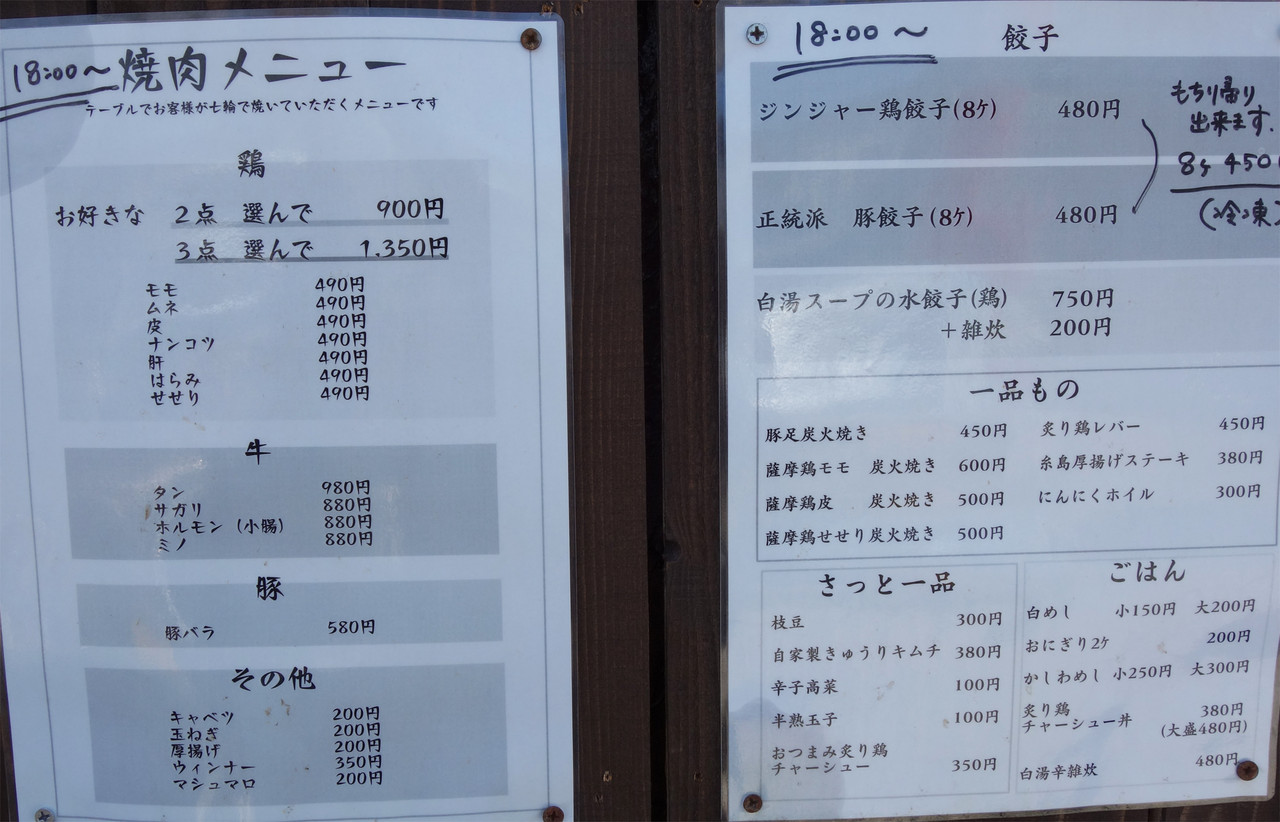 18:00～焼肉メニュー
テーブルでお客様が七輪で焼いていただくメニューです
鶏
お好きな 2点 選んで 900円
3点 選んで 1.350円
モモ 490円
ムネ 490円
皮 490円
ナンコツ 490円
肝 490円
はらみ 490円
せせり 490円
牛
タン 980円
サガリ 880円
ホルモン（小腸） 880円
ミノ 880円
豚
豚バラ 580円
その他
キャベツ 200円
玉ねぎ 200円
厚揚げ 200円
ウィンナー 350円
マシュマロ 200円
18:00～ 餃子
ジンジャー鶏餃子(8ケ) 480円
正統派 豚餃子(8ケ) 480円
もち帰り
出来ます.
8ケ 450
(冷凍)
白湯スープの水餃子(鶏) 750円
＋雑炊 200円
一品もの
豚足炭火焼き 450円
薩摩鶏モモ 炭火焼き 600円
薩摩鶏皮 炭火焼き 500円
薩摩鶏せせり炭火焼き 500円
炙り鶏レバー 450円
糸島厚揚げステーキ 380円
にんにくホイル 300円
さっと一品
枝豆 300円
自家製きゅうりキムチ 380円
辛子高菜 100円
半熟玉子 100円
おつまみ炙り鶏
チャーシュー 350円
ごはん
白めし 小150円 大200円
おにぎり2ケ 200円
かしわめし 小250円 大300円
炙り鶏 380円
チャーシュー丼 (大盛480円)
白湯辛雑炊 480円